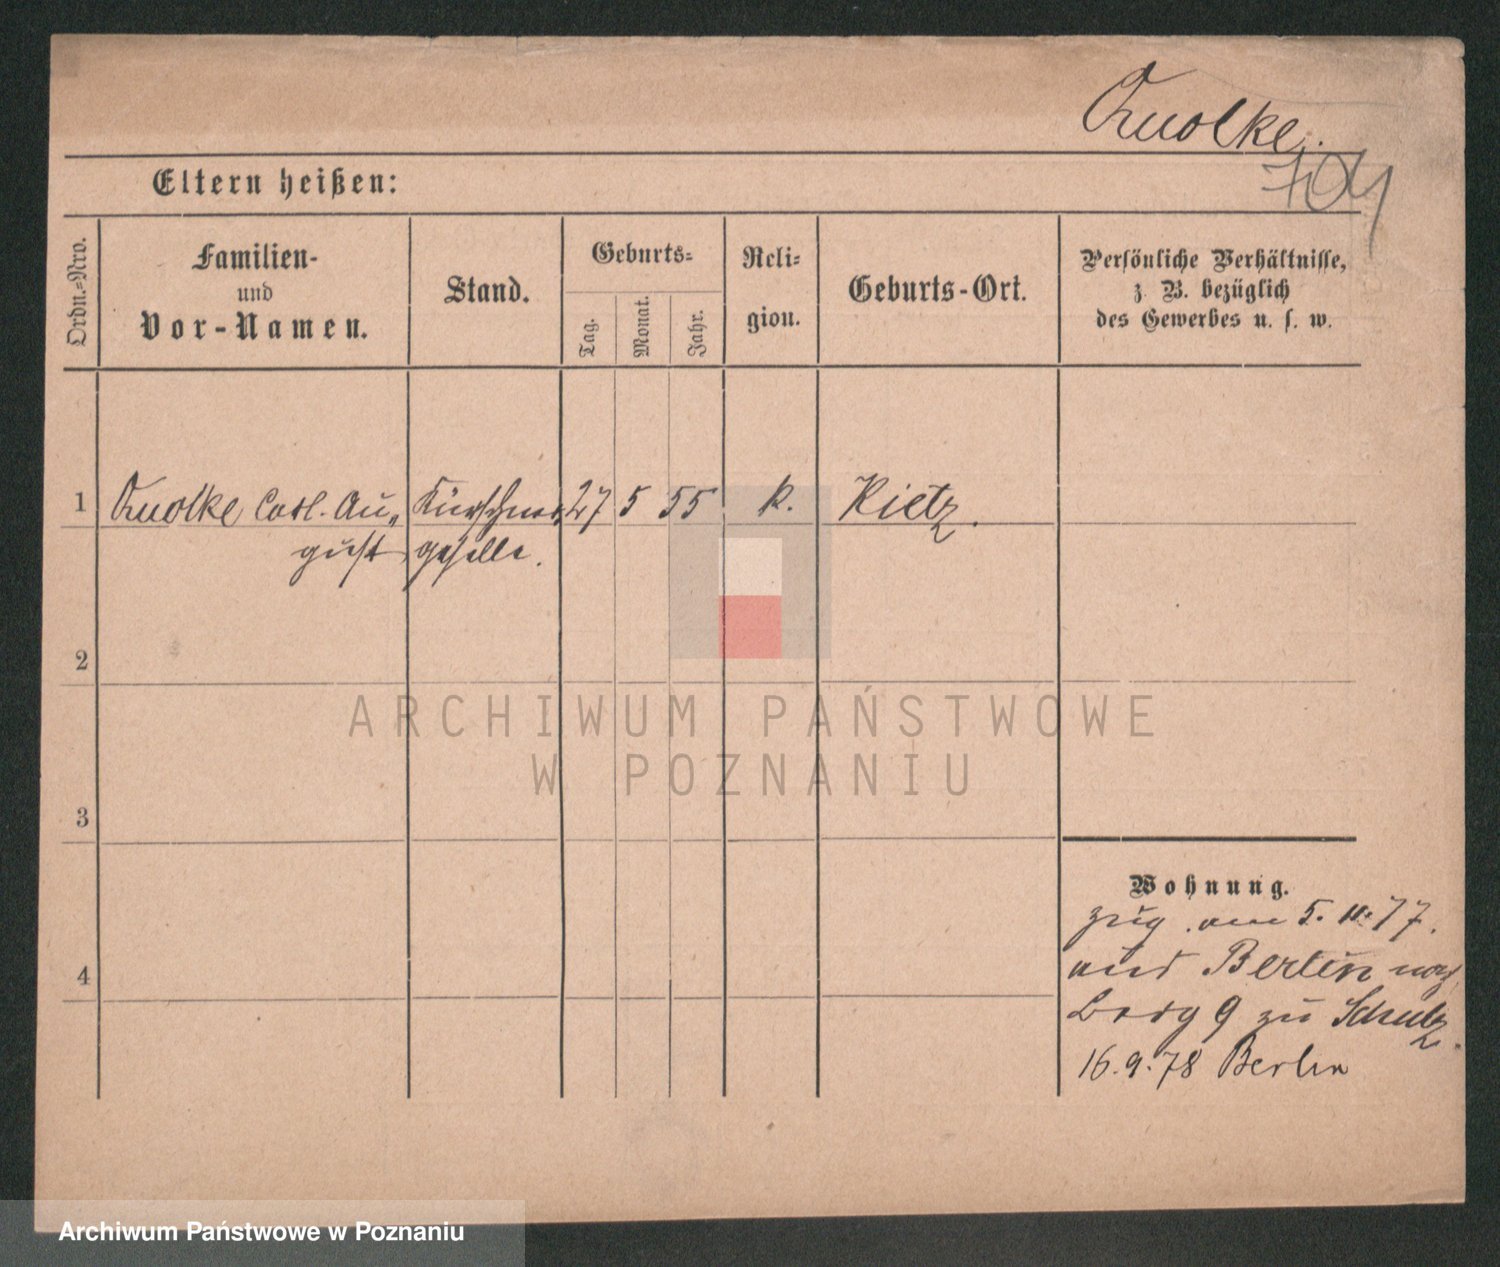 Quolke.
704
Eltern heißen:
Ordn.=Nro.
Familien-
und
Vor-Namen.
Stand.
Geburts=
Tag.
Monat.
Jahr.
Reli=
gion.
Geburts-Ort.
Persönliche Verhältnisse,
z. B. bezüglich
des Gewerbes u. s. w.
1 Quolke Carl. Au„ Kürschner 27 5 55 k. Kietz.
gust geselle.
2
ARCHIWUM PAŃSTWOWE
W POZNANIU
3
Wohnung.
zug. am 5. 11. 77.
aus Berlin nach
4
9 zu Schulz.
16.9.78 Berlin
Archiwum Państwowe w Poznaniu